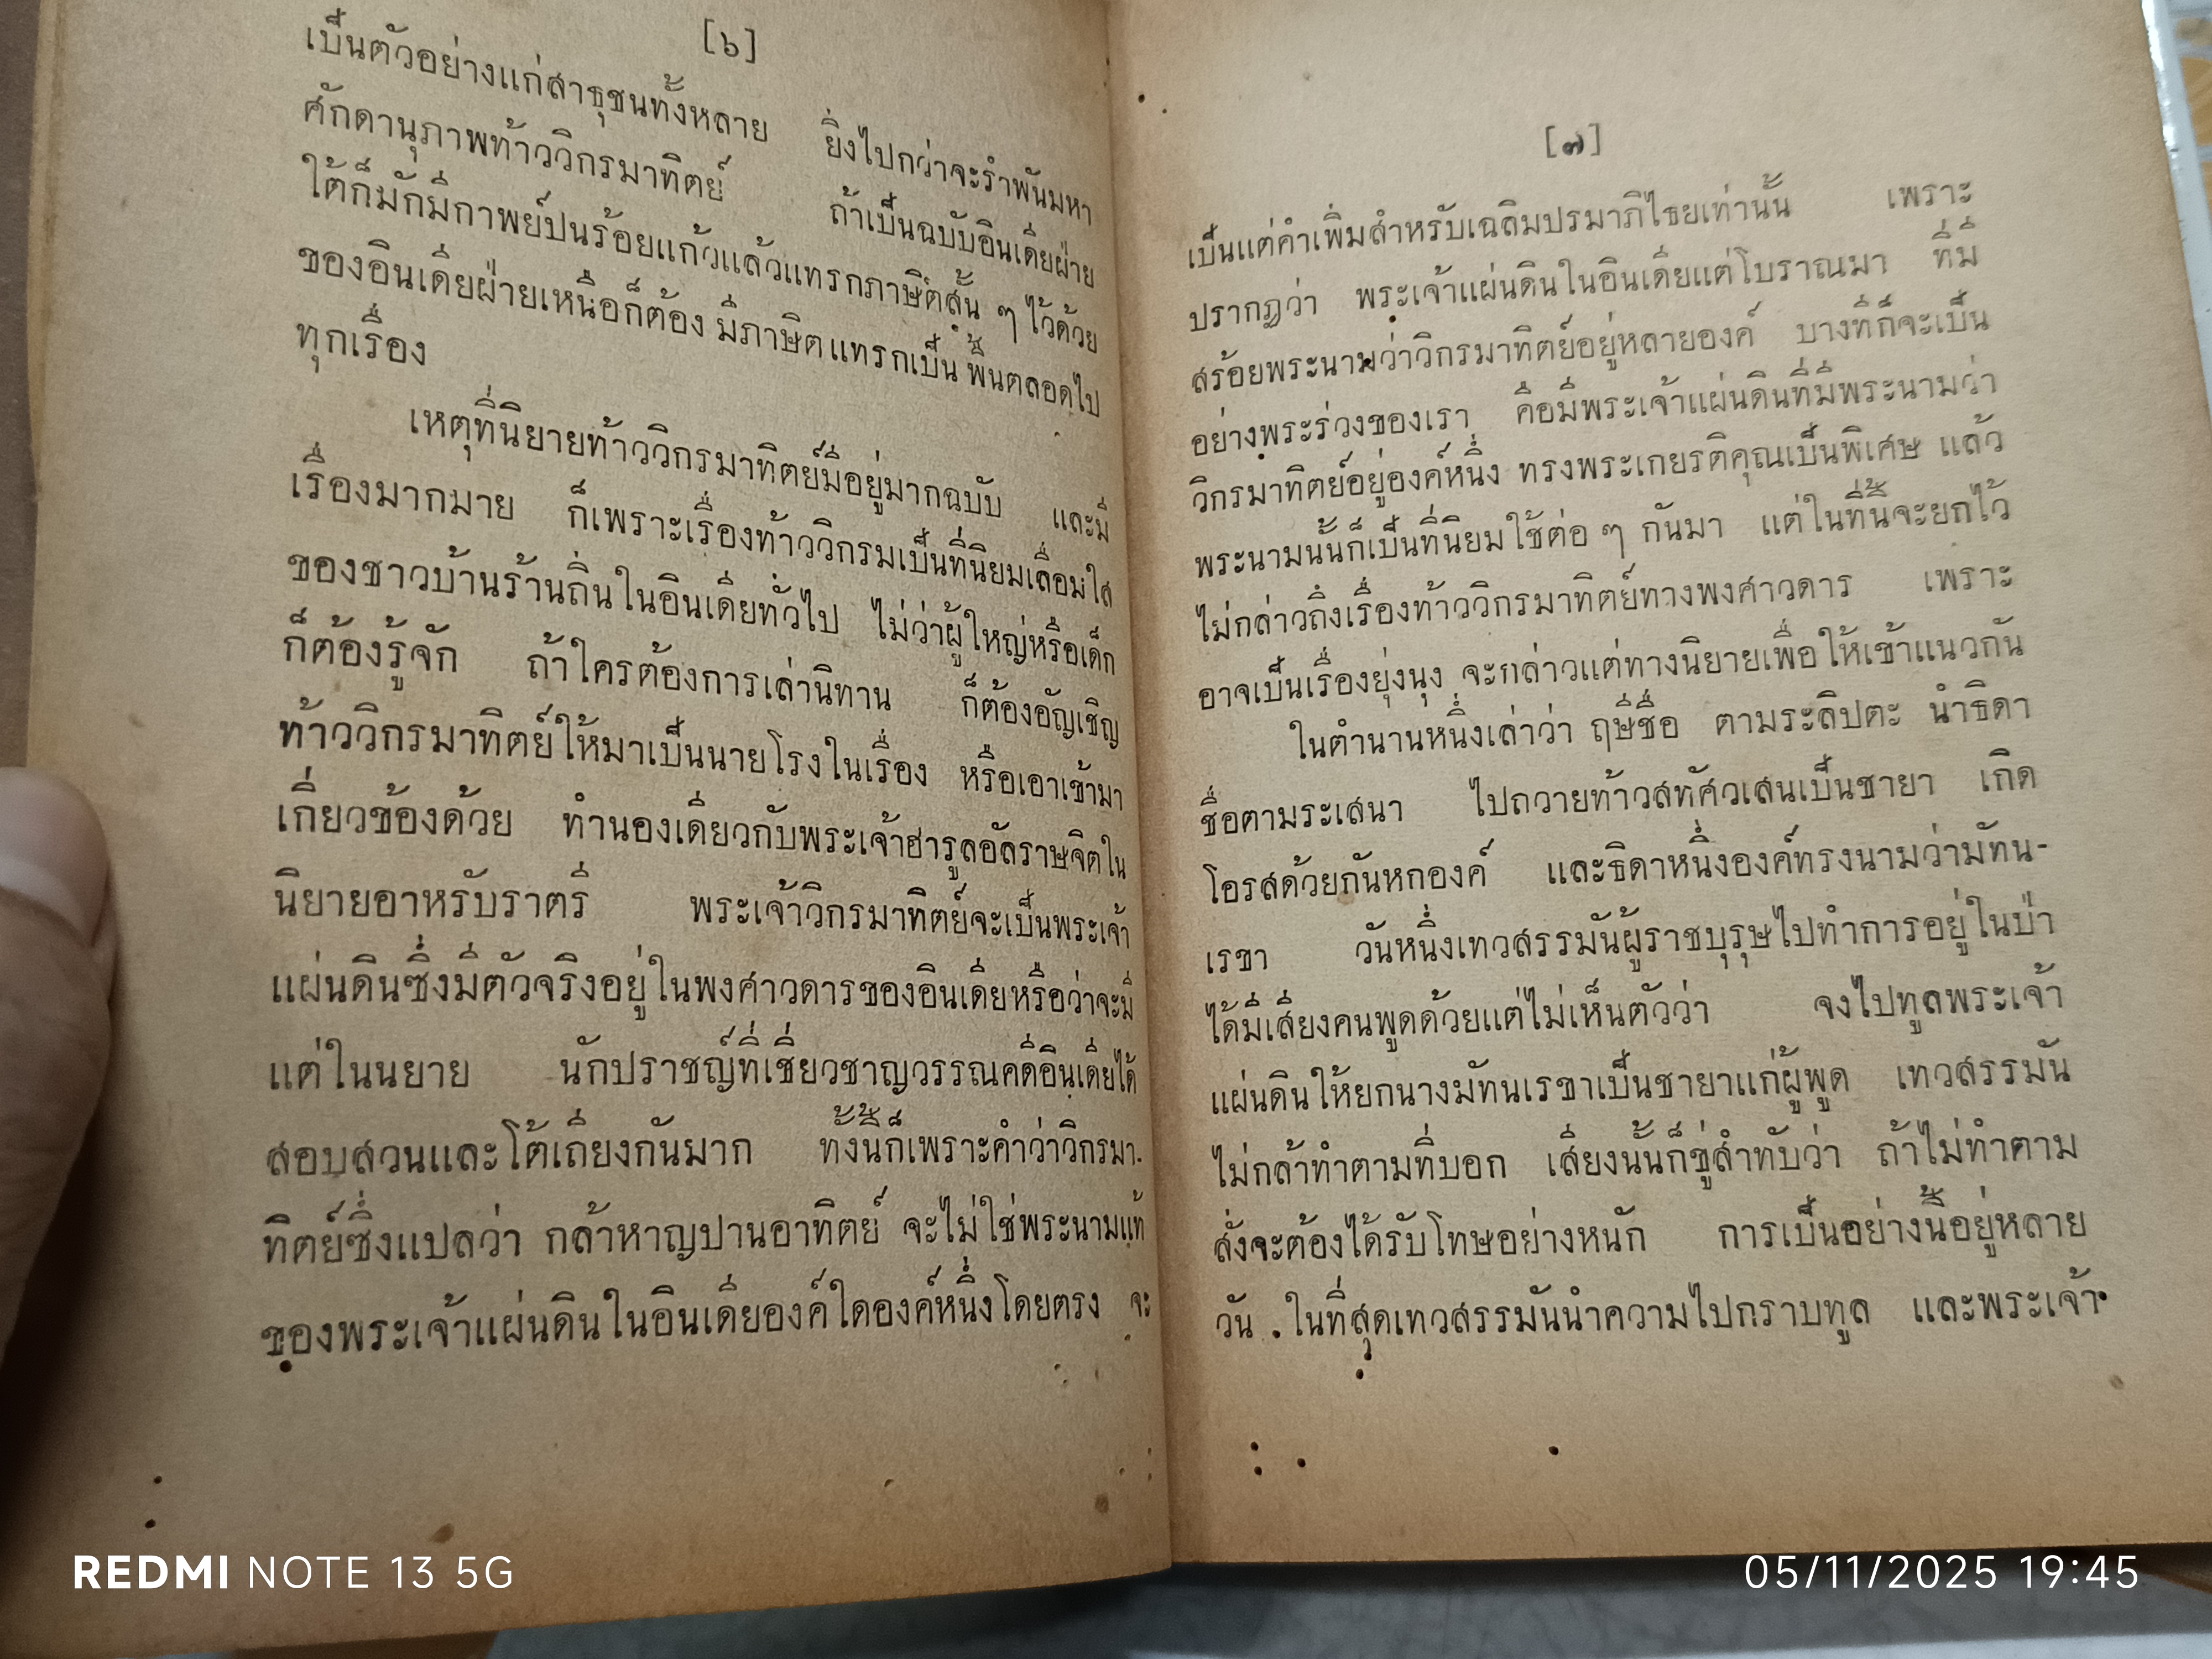 [๖]
เป็นตัวอย่างแก่สาธุชนทั้งหลาย ยิ่งไปกว่าจะรำพันมหา
ศักดานุภาพท้าววิกรมาทิตย์ ถ้าเป็นฉบับอินเดียฝ่าย
ใต้ก็มักมีกาพย์ปนร้อยแก้วแล้วแทรกภาษิตสั้น ๆ ไว้ด้วย
ของอินเดียฝ่ายเหนือก็ต้อง มีภาษิตแทรกเป็น พื้นตลอดไป
ทุกเรื่อง
เหตุที่นิยายท้าววิกรมาทิตย์มีอยู่มากฉบับ และมี
เรื่องมากมาย ก็เพราะเรื่องท้าววิกรมเป็นที่นิยมเลื่อมใส
ของชาวบ้านร้านถิ่นในอินเดียทั่วไป ไม่ว่าผู้ใหญ่หรือเด็ก
ก็ต้องรู้จัก ถ้าใครต้องการเล่านิทาน ก็ต้องอัญเชิญ
ท้าววิกรมาทิตย์ให้มาเป็นนายโรงในเรื่อง หรือเอาเข้ามา
เกี่ยวข้องด้วย ทำนองเดียวกับพระเจ้าฮารูลอัลราษจิตใน
นิยายอาหรับราตรี พระเจ้าวิกรมาทิตย์จะเป็นพระเจ้า
แผ่นดินซึ่งมีตัวจริงอยู่ในพงศาวดารของอินเดียหรือว่าจะมี
แต่ในนยาย นักปราชญ์ที่เชี่ยวชาญวรรณคดีอินเดียได้
สอบสวนและโต้เถียงกันมาก ทั้งนี้ก็เพราะคำว่าวิกรมา-
ทิตย์ซึ่งแปลว่า กล้าหาญปานอาทิตย์ จะไม่ใช่พระนามแท้
ของพระเจ้าแผ่นดินในอินเดียองค์ใดองค์หนึ่งโดยตรง จะ
[๗]
เป็นแต่คำเพิ่มสำหรับเฉลิมปรมาภิไธยเท่านั้น เพราะ
ปรากฏว่า พระเจ้าแผ่นดินในอินเดียแต่โบราณมา ที่มี
สร้อยพระนามว่าวิกรมาทิตย์อยู่หลายองค์ บางทีก็จะเป็น
อย่างพระร่วงของเรา คือมีพระเจ้าแผ่นดินที่มีพระนามว่า
วิกรมาทิตย์อยู่องค์หนึ่ง ทรงพระเกยรติคุณเป็นพิเศษ แล้ว
พระนามนั้นก็เป็นที่นิยมใช้ต่อ ๆ กันมา แต่ในที่นี้จะยกไว้
ไม่กล่าวถึงเรื่องท้าววิกรมาทิตย์ทางพงศาวดาร เพราะ
อาจเป็นเรื่องยุ่งนุง จะกล่าวแต่ทางนิยายเพื่อให้เข้าแนวกัน
ในตำนานหนึ่งเล่าว่า ฤษีชื่อ ตามระลิปตะ นำธิดา
ชื่อตามระเสนา ไปถวายท้าวสทัศวเสนเป็นชายา เกิด
โอรสด้วยกันหกองค์ และธิดาหนึ่งองค์ทรงนามว่ามัทน-
เรขา วันหนึ่งเทวสรรมันผู้ราชบุรุษไปทำการอยู่ในป่า
ได้มีเสียงคนพูดด้วยแต่ไม่เห็นตัวว่า จงไปทูลพระเจ้า
แผ่นดินให้ยกนางมัทนเรขาเป็นชายาแก่ผู้พูด เทวสรรมัน
ไม่กล้าทำตามที่บอก เสียงนั้นก็ขู่สำทับว่า ถ้าไม่ทำตาม
สั่งจะต้องได้รับโทษอย่างหนัก การเป็นอย่างนี้อยู่หลาย
วัน ในที่สุดเทวสรรมันนำความไปกราบทูล และพระเจ้า
REDMI NOTE 13 5G
05/11/2025 19:45